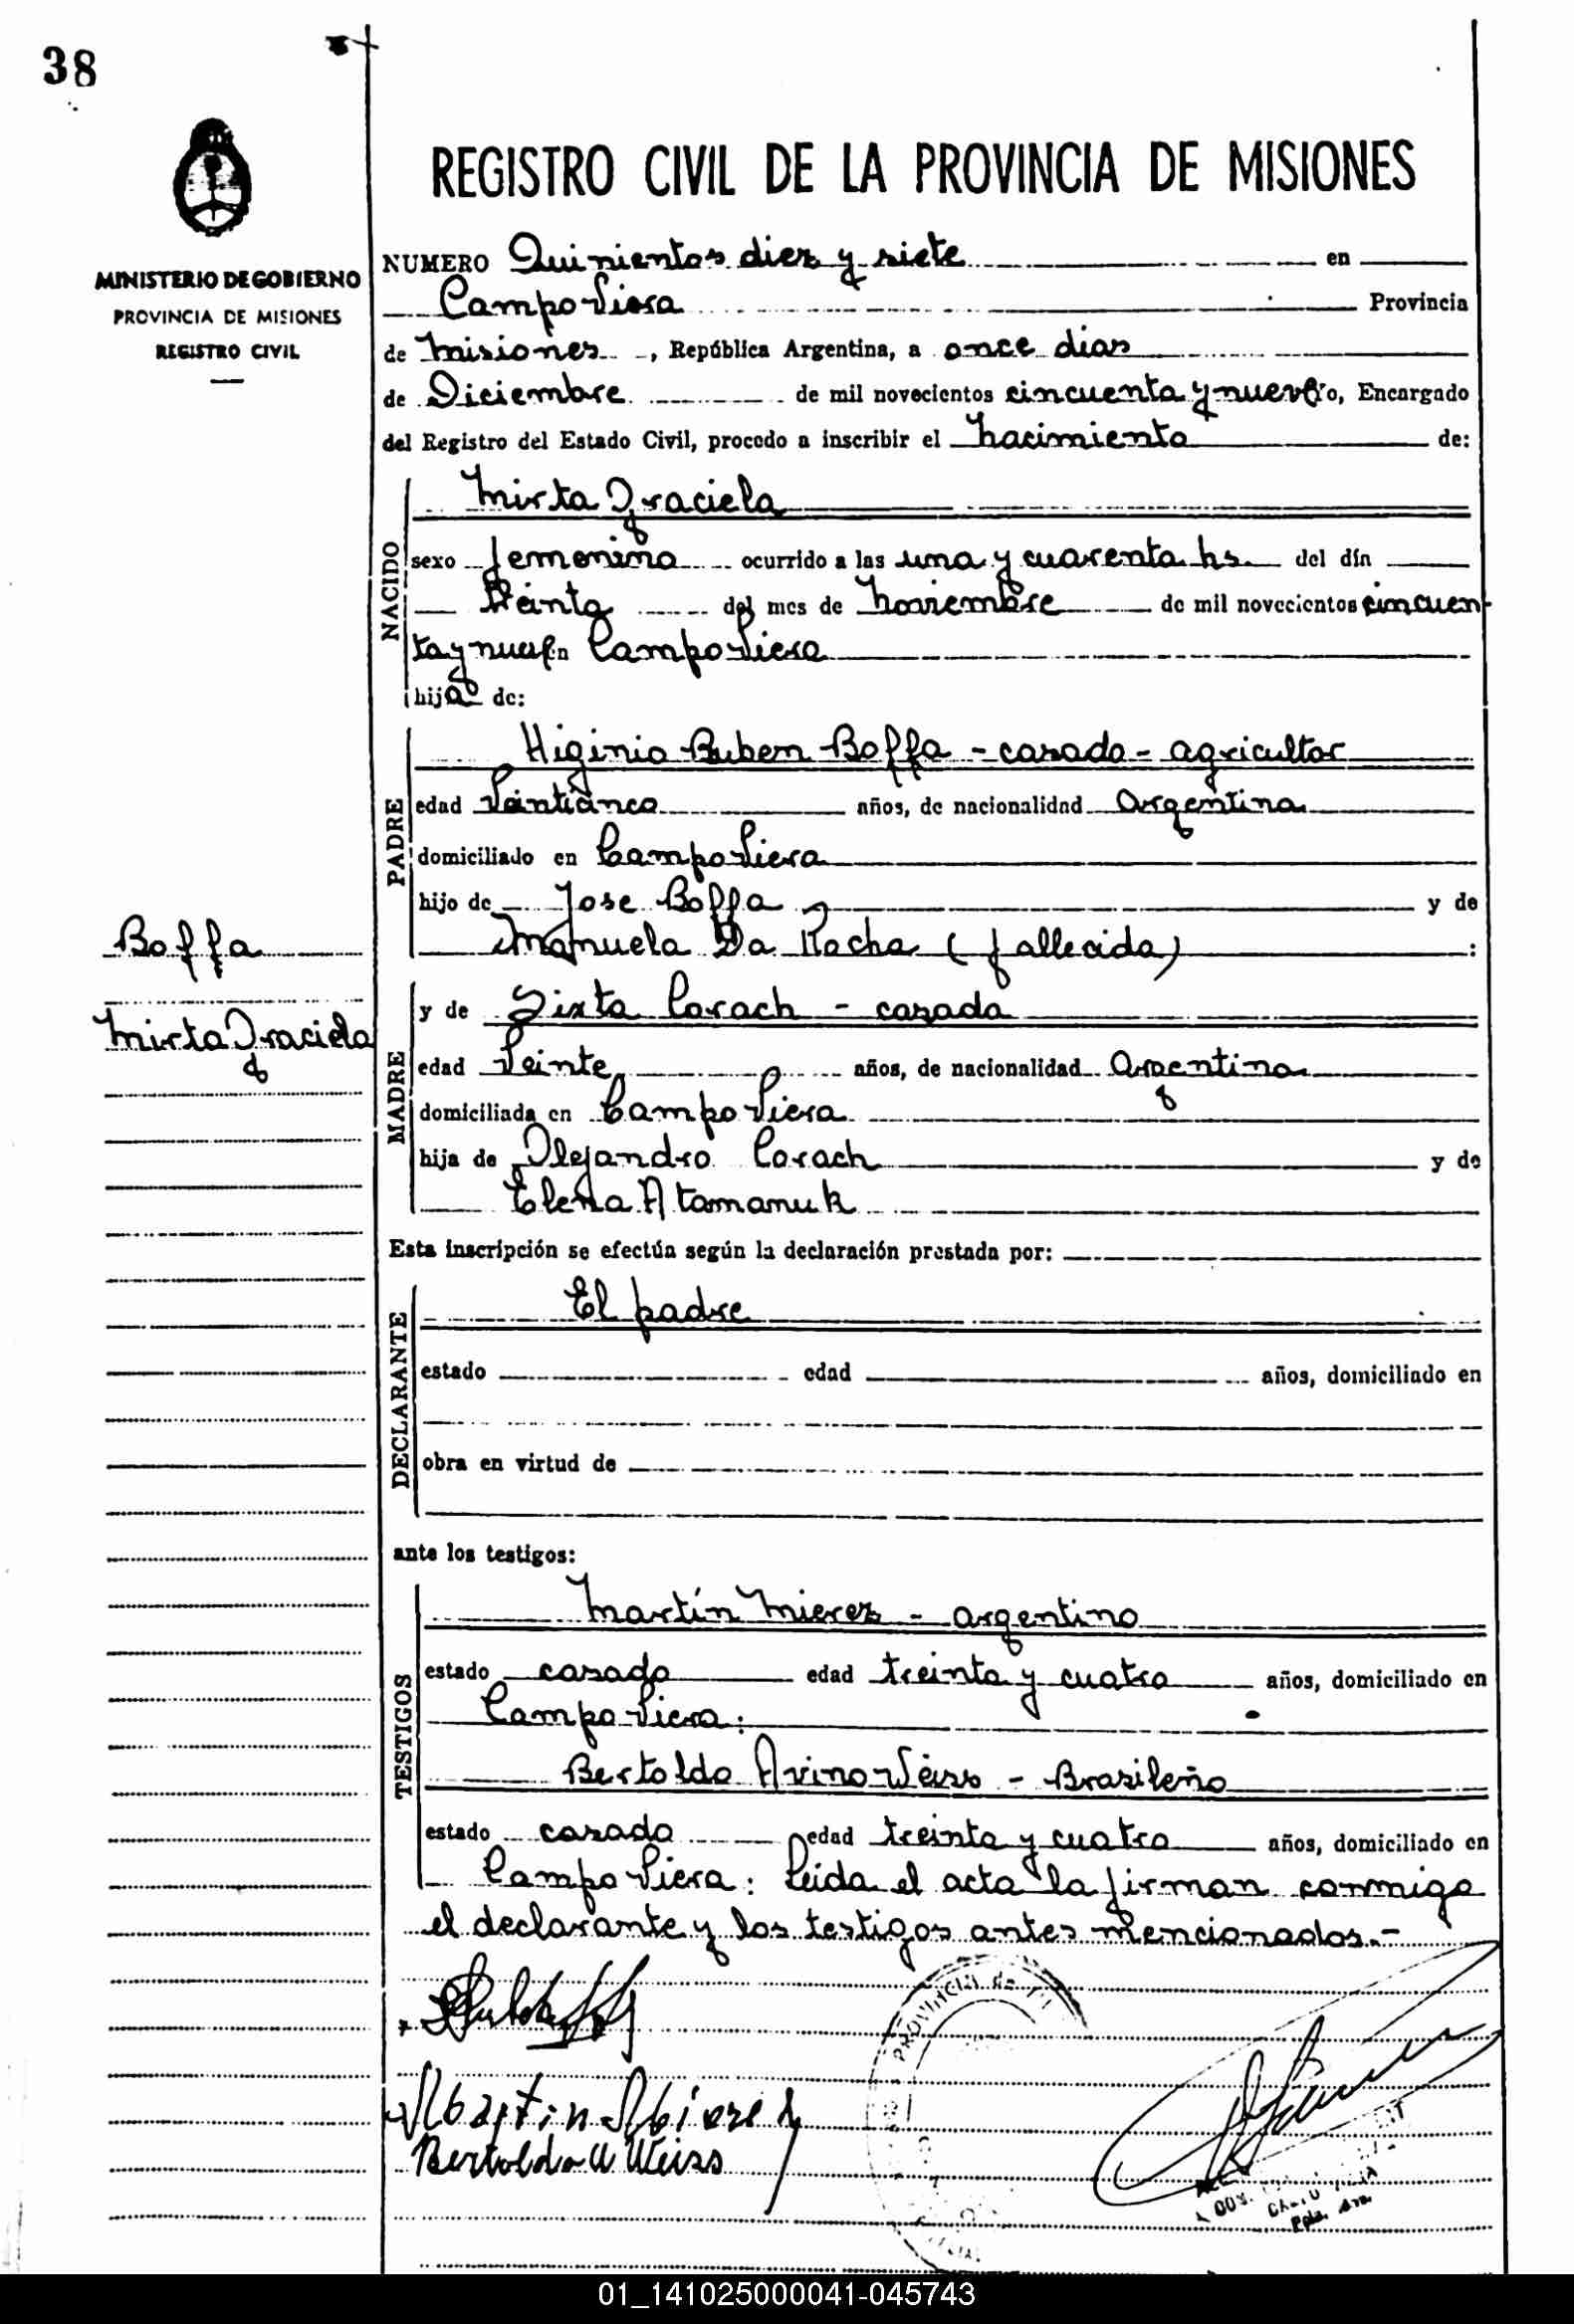 38
MINISTERIO DE GOBIERNO
PROVINCIA DE MISIONES
REGISTRO CIVIL
REGISTRO CIVIL DE LA PROVINCIA DE MISIONES
NUMERO Quinientos diez y siete en
Campo Viera Provincia
de Misiones, República Argentina, a once dias
de Diciembre de mil novecientos cincuenta y nueve, Encargado
del Registro del Estado Civil, procedo a inscribir el Nacimiento de:
NACIDO
Mirta Graciela
sexo femenino ocurrido a las una y cuarenta hs. del día
treinta del mes de Noviembre de mil novecientos cincuen
ta y nueve en Campo Viera
hija de:
PADRE
Higinio Ruben Boffa - casado - agricultor
edad Veinticinco años, de nacionalidad Argentina
domiciliado en Campo Viera
hijo de Jose Boffa y de
Manuela Da Rocha (fallecida)
Boffa
Mirta Graciela
MADRE
y de Sixta Corach - casada
edad Veinte años, de nacionalidad Argentina
domiciliada en Campo Viera
hija de Alejandro Corach y de
Elena Atamanuk
Esta inscripción se efectúa según la declaración prestada por:
DECLARANTE
El padre
estado edad años, domiciliado en
obra en virtud de
ante los testigos:
TESTIGOS
Martín Mierez - argentino
estado casado edad treinta y cuatro años, domiciliado en
Campo Viera:
Bertoldo Avino Weiss - Brasileño
estado casado edad treinta y cuatro años, domiciliado en
Campo Viera: Leida el acta la firman conmigo
el declarante y los testigos antes mencionados.-
PROVINCIA de
Martin Mierez
Bertoldo A Weiss
01_141025000041-045743